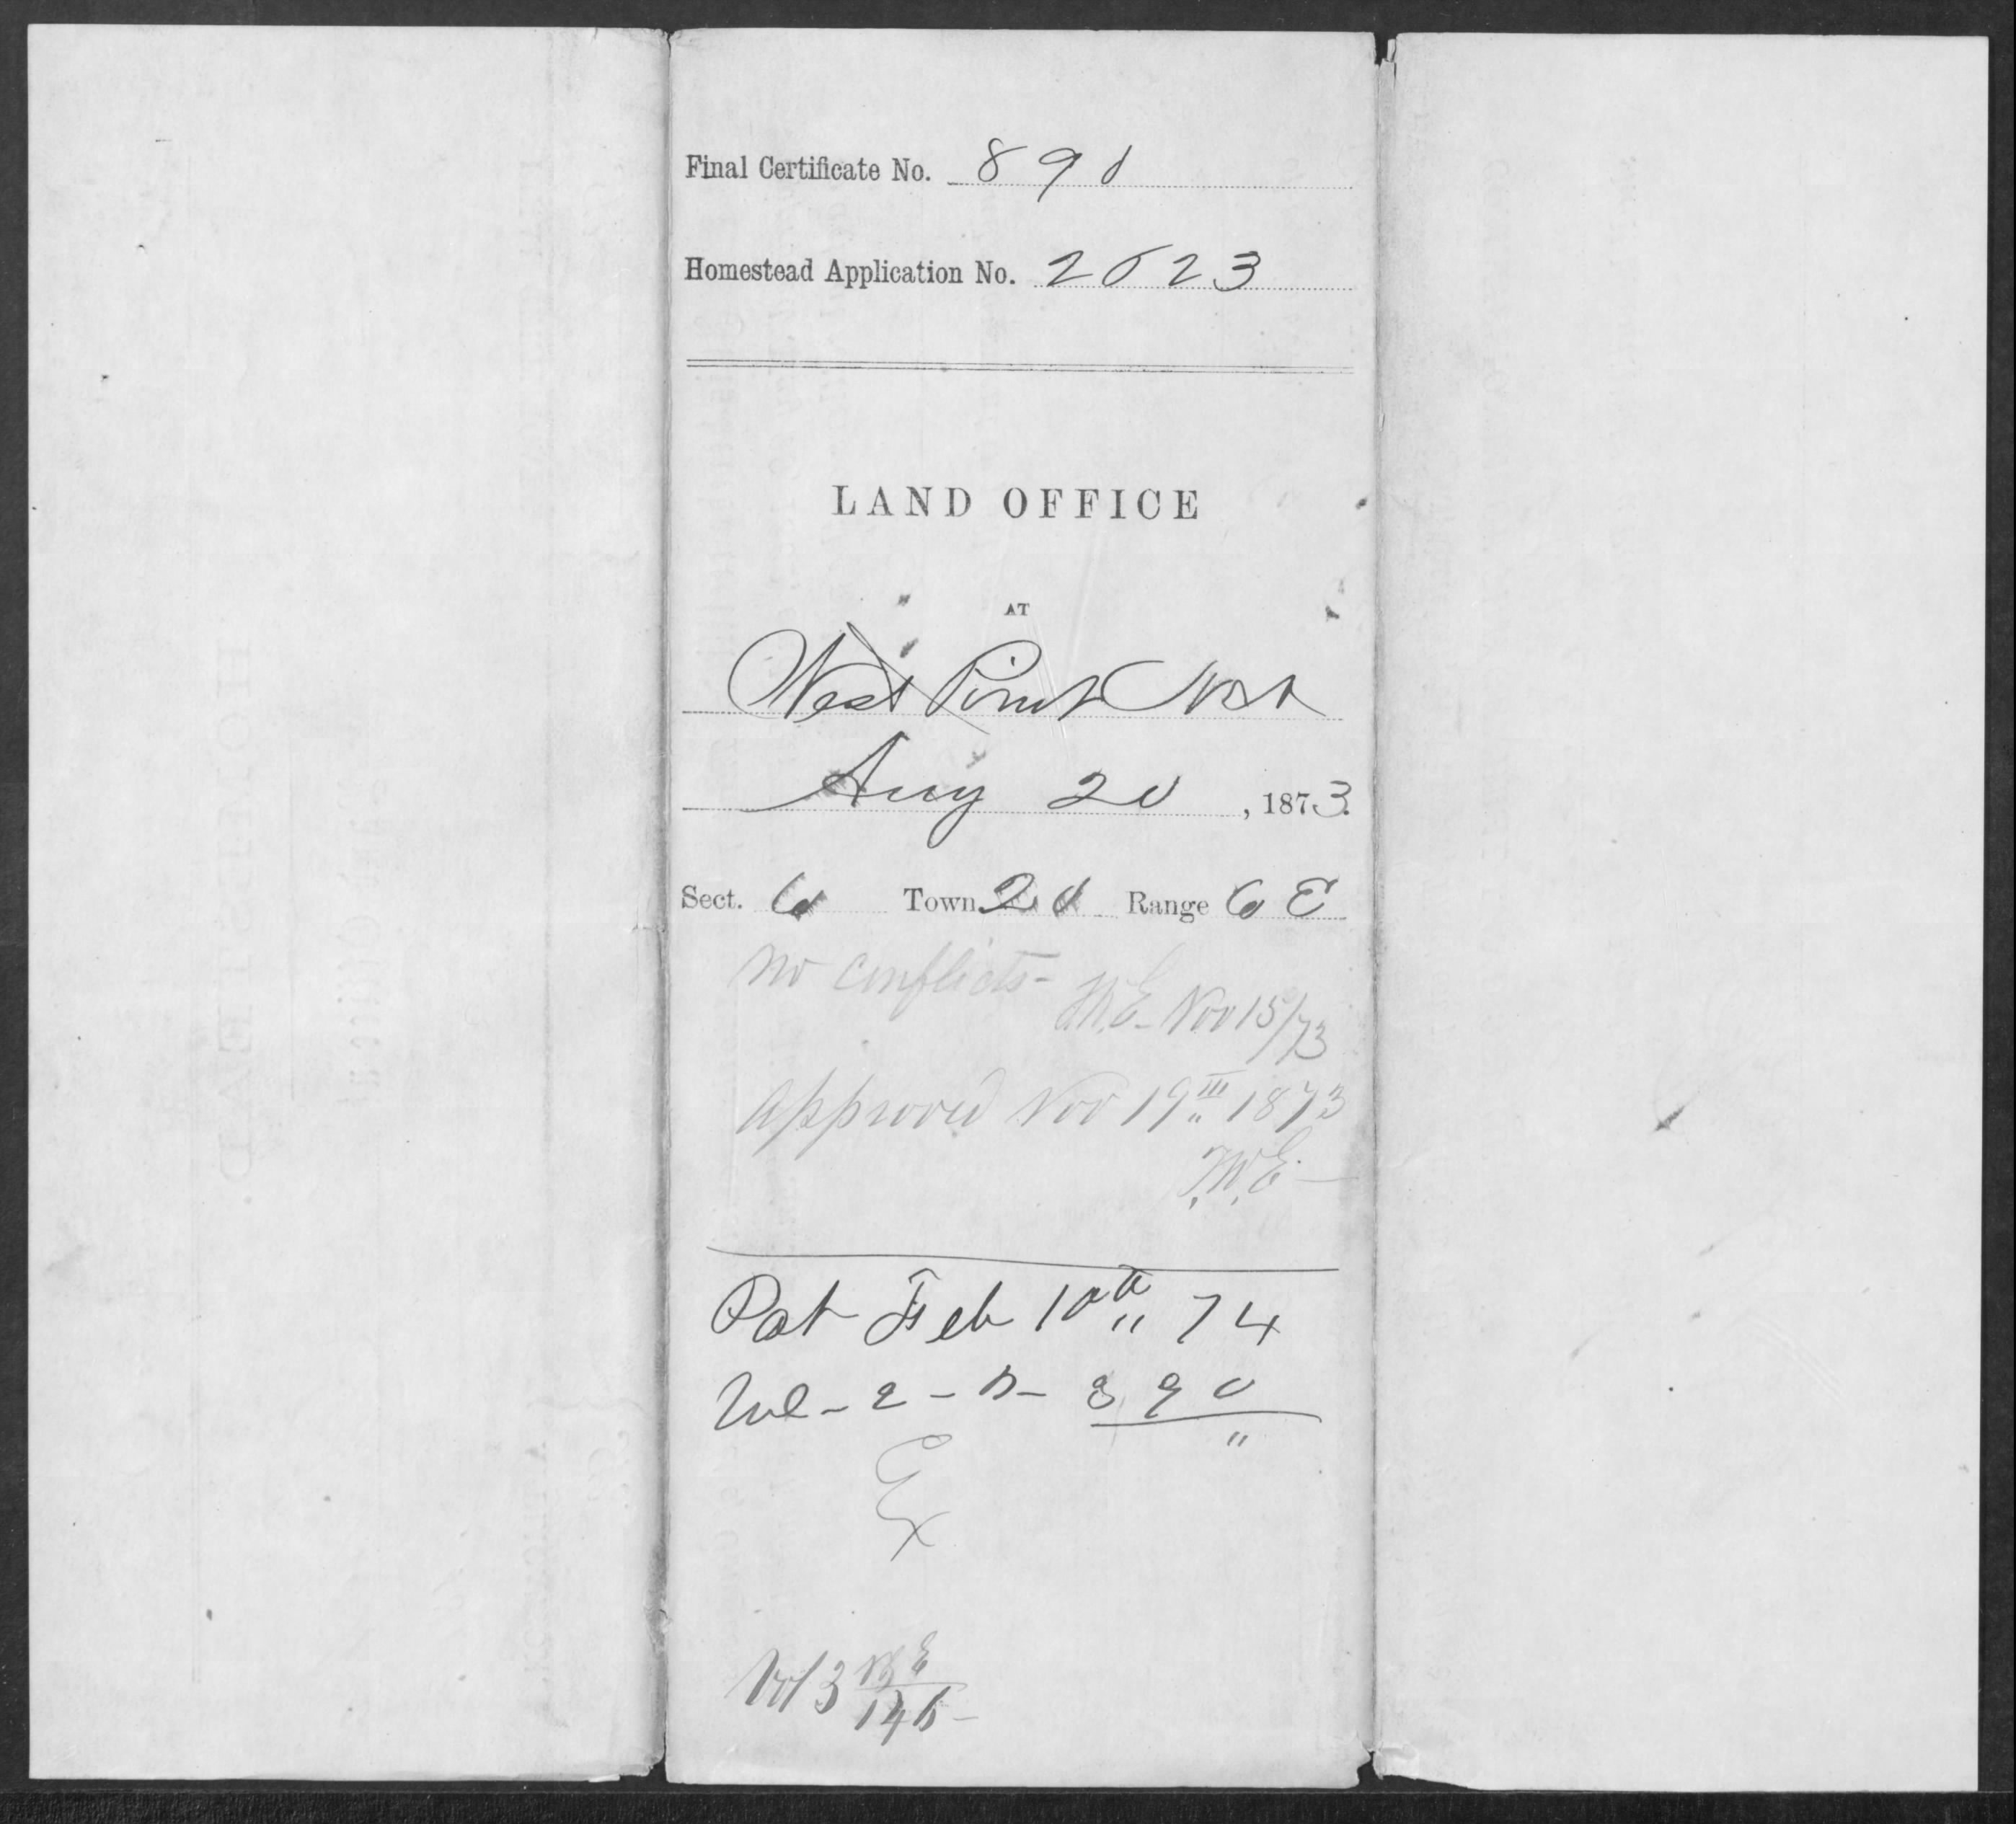 Final Certificate No. 890
Homestead Application No. 2623
LAND OFFICE
AT
West Point Neb
Aug 20, 1873.
Sect. 6 Town 20 Range 6 E
No conflicts-
Nov 15/73
Approved Nov 19th 1873
T.W.E-
Pat Feb 10th 74
Vol-2-P- 390
Ex
Vol 3